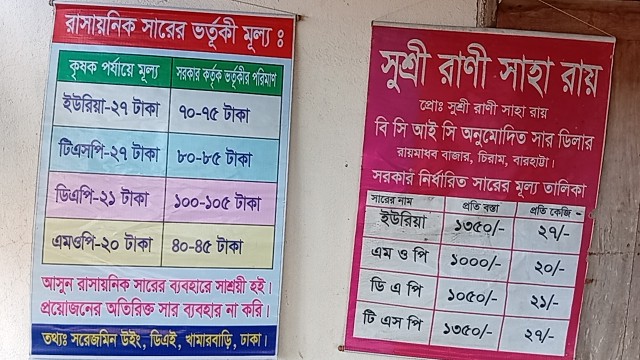 রাসায়নিক সারের ভর্তুকী মূল্য :
কৃষক পর্যায়ে মূল্য সরকার কর্তৃক ভর্তুকীর পরিমাণ
ইউরিয়া-২৭ টাকা ৭০-৭৫ টাকা
টিএসপি-২৭ টাকা ৮০-৮৫ টাকা
ডিএপি-২১ টাকা ১০০-১০৫ টাকা
এমওপি-২০ টাকা ৪০-৪৫ টাকা
আসুন রাসায়নিক সারের ব্যবহারে সাশ্রয়ী হই।
প্রয়োজনের অতিরিক্ত সার ব্যবহার না করি।
তথ্যঃ সরেজমিন উইং, ডিএই, খামারবাড়ি, ঢাকা।
সুশ্রী রাণী সাহা রায়
প্রোঃ সুশ্রী রাণী সাহা রায়
বি সি আই সি অনুমোদিত সার ডিলার
রায়মাধব বাজার, চিরাম, বারহাট্টা।
সরকার নির্ধারিত সারের মূল্য তালিকা
সারের নাম প্রতি বস্তা প্রতি কেজি -
ইউরিয়া ১৩৫০/- ২৭/-
এম ও পি ১০০০/- ২০/-
ডি এ পি ১০৫০/- ২১/-
টি এস পি ১৩৫০/- ২৭/-